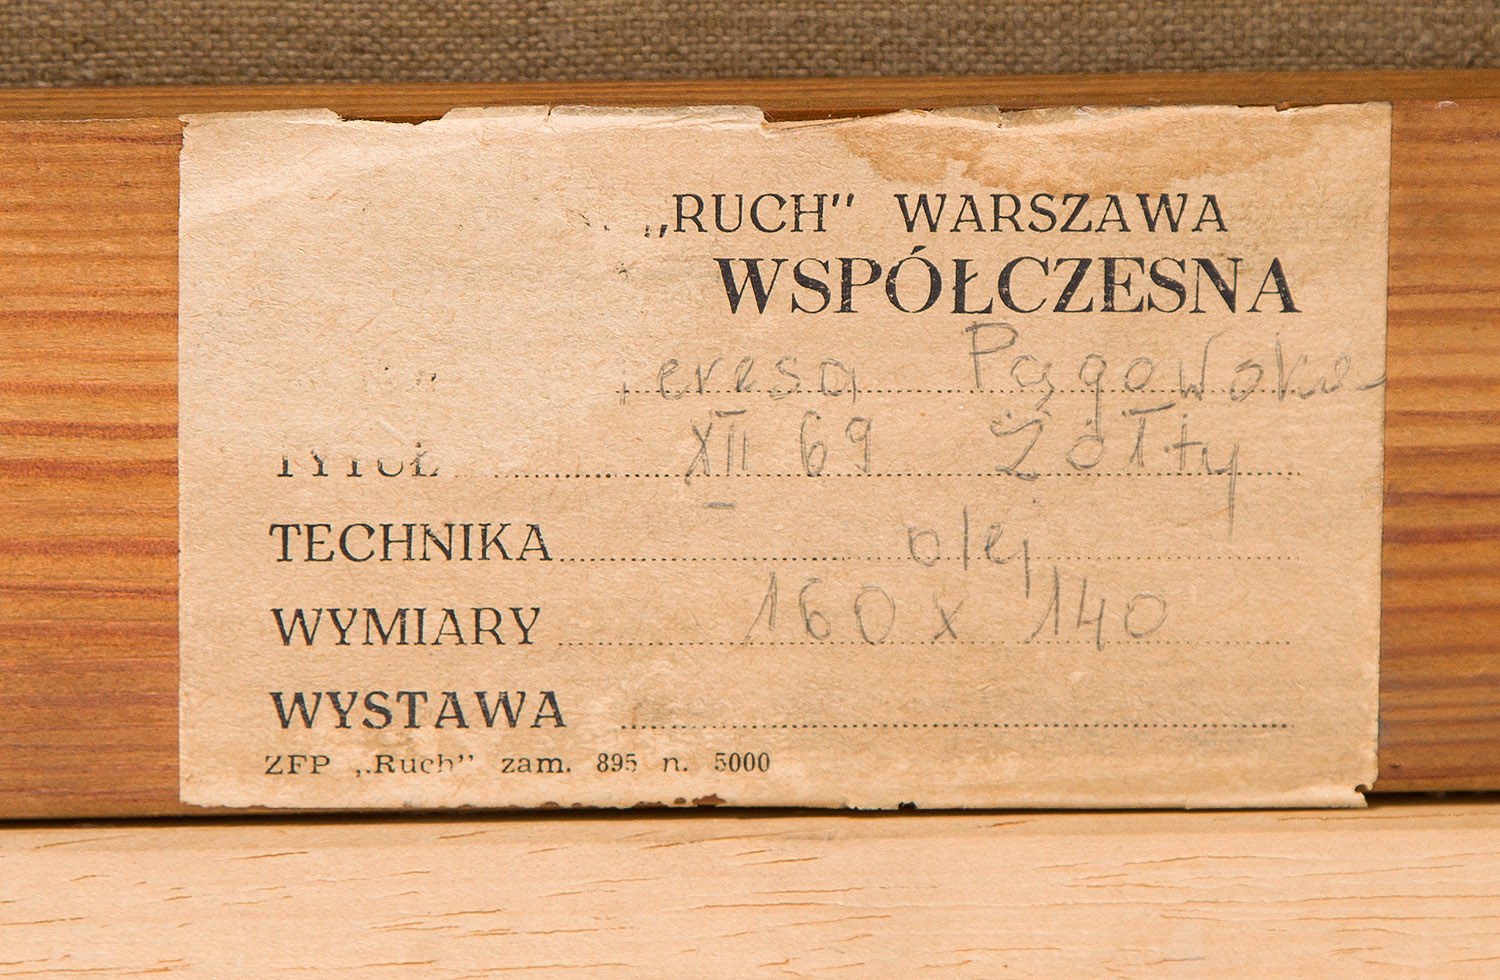 „RUCH” WARSZAWA
WSPÓŁCZESNA
eresa Pągowska
TYTUŁ XII 69 Żółty
TECHNIKA olej
WYMIARY 160 x 140
WYSTAWA
ZFP „Ruch” zam. 895 n. 5000